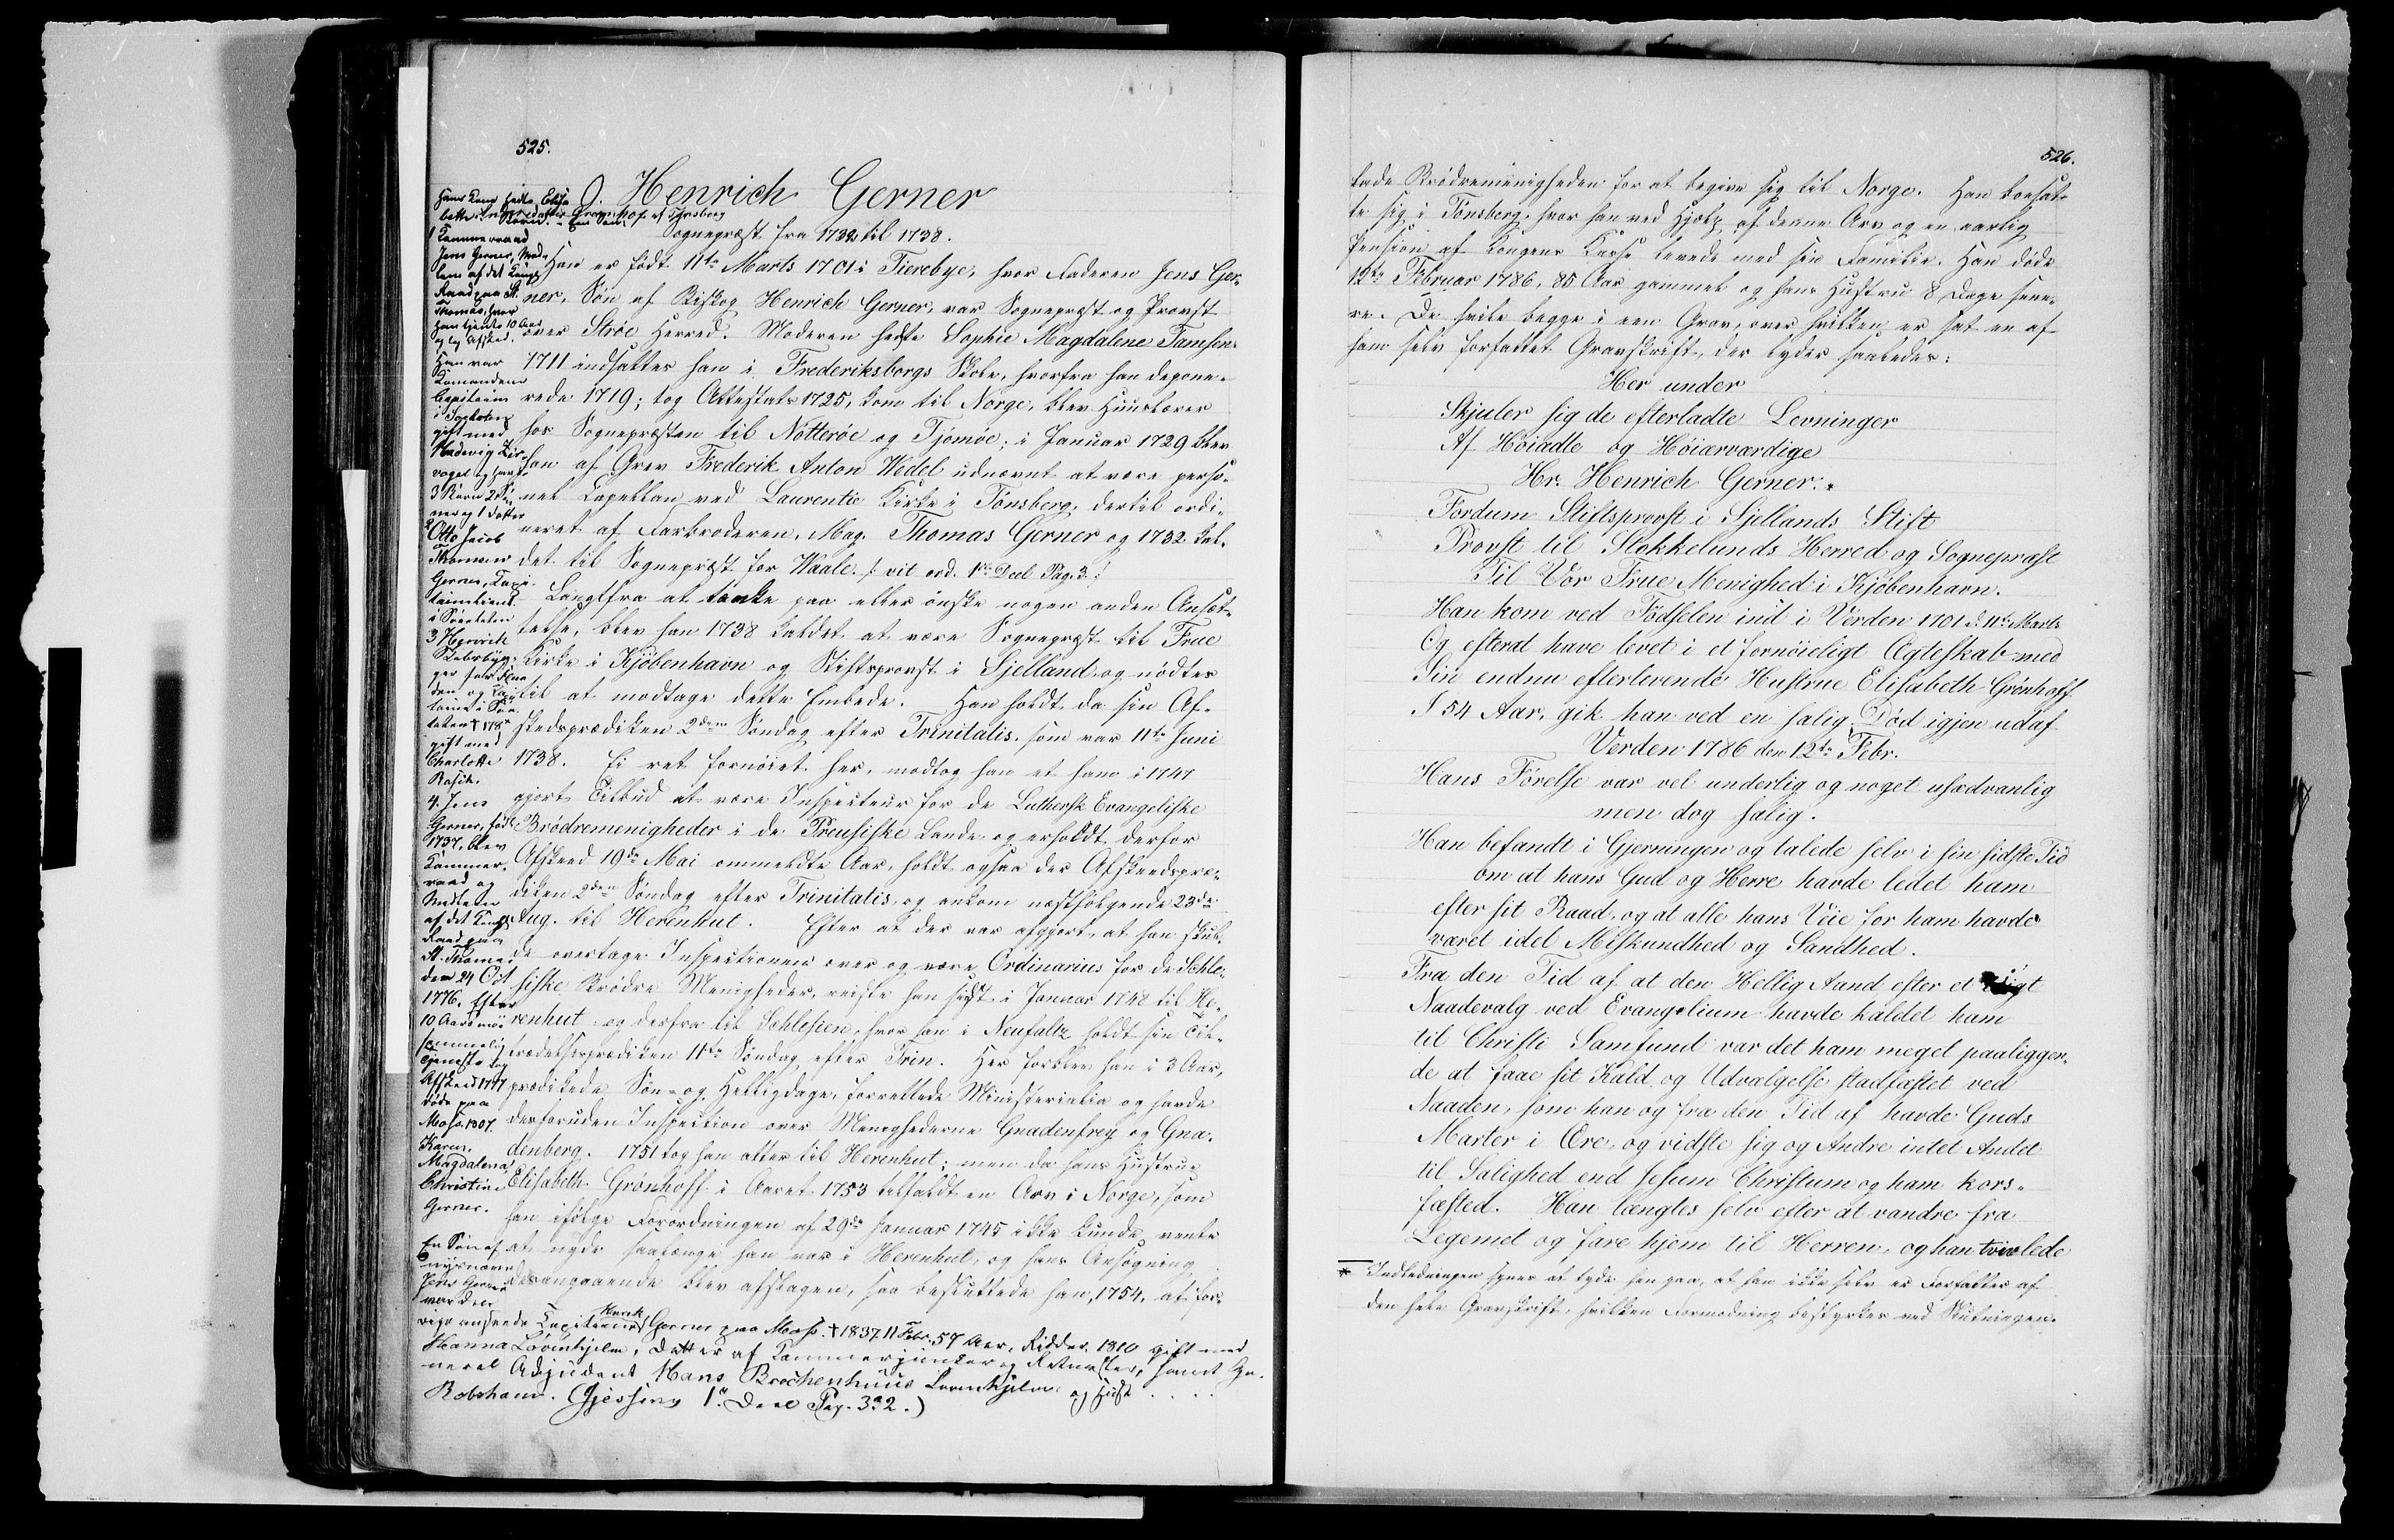 525.
J. Henrich Gerner
Sognepræst fra 1732 til 1738.
Han er født 11te Marts 1701 i Tierebye, hvor Faderen Jens Ger-
ner, Søn af Biskop Henrich Gerner, var Sognepræst og Provst
over Strøe Herred. Moderen hedte Sophie Magdalene Tamsen.
1711 indsattes han i Frederiksborgs Skole, hvorfra han depone-
rede 1719; tog Attestats 1725, kom til Norge, blev Huuslærer
hos Sognepræsten til Nøtterøe og Tjømøe; i Januar 1729 blev
han af Grev Frederik Anton Wedel udnævnt at være perso-
nel Capellan ved Laurentie Kirke i Tønsberg, dertil ordi-
neret af Farbroderen, Mag. Thomas Gerner og 1732 kal-
det til Sognepræst for Waale. /: vit ord. 1ste Deel Pag. 3 :/
Langtfra at tænke paa eller ønske nogen anden Ansæt-
telse, blev han 1738 kaldet at være Sognepræst til Frue
Kirke i Kjøbenhavn og Stiftsprovst i Sjelland, og nødtes
til at modtage dette Embede. Han holdt da sin Af-
skedsprædiken 2den Søndag efter Trinitatis, som var 11te Juni
1738. Ei ret fornøiet her, modtog han et ham i 1747
gjort Tilbud at være Inspecteur for de Luthersk Evangeliske
Brødremenigheder i de Preusiske Lande og erholdt derfor
Afskeed 19de Mai ommeldte Aar, holdt ogsaa der Afskeedspræ-
diken 2den Søndag efter Trinitatis, og ankom næstfølgende 23de
Aug. til Herenhut. Efter at der var afgjort, at han skul-
de overtage Inspectionen over og være Ordinarius for de Schle-
siske Brødre Menigheder, reiste han sidst i Januar 1748 til He-
renhut og derfra til Schlesien, hvor han i Neusaltz holdt sin Til-
trædelsesprædiken 11te Søndag efter Trin. Her forblev han i 3 Aar,
prædikede Søn- og Helligdage, forrettede Ministerialia og havde
desforuden Inspection over Menighederne Gnadenfrey og Gna-
denberg. 1751 tog han atter til Herenhut; men da hans Hustrue
Elisabeth Grønhoff i Aaret 1753 tilfaldt en Arv i Norge, som
han ifølge Forordningen af 29de Januar 1745 ikke kunde vente
at nyde saalænge han var i Herenhut, og hans Ansøgning
desangaaende blev afslagen, saa besluttede han, 1754, at for-
Hans Kone hedte Elisa
beth
Grønhof af Tønsberg
1 Kammerraad
Jens Gerner, Med-
lem af det Kongl
Raad paa St.
Thomas, hvor
han tjente 10 Aar
og tog Afsked.
Han var
gift med
Hedevig
3 Børn 2 Sø-
ner og 1 Datter
2 Otto Jacob
Thomsen
Gerner, Capi-
3 Henrich
gift med
Charlotte
Rasch.
4. Jens
Gerner, født
1737, blev
Kammer-
raad og
Medlem
af det Kongl
Raad paa
St. Thomas
den 24 Oct
1776. Efter
10 Aars møi
sommelig
Tjeneste tog
Afskeed 1777
døde paa
Moss 1807.
Karen
Magdalena
Christine
Gerner.
En Søn af
Jens Gerner
var den
Henrik
Gerner paa Moss. † 1837 11 Febr. 57 Aar, Ridder, 1810 gift med
Hanna Løvenhjelm, Datter af Kammerjunker og Ritmester, samt Ge-
neral Adjudant Hans Brochenhuus Løvenhjelm og Hust
Robsham. (Giessing 1. Deel Pag. 332.)
526.
lade Brødremenigheden for at begive sig til Norge. Han bosat-
te sig i Tønsberg, hvor han ved Hjælp af denne Arv og en aarlig
Pension af Kongens Kasse levede med sin Familie. Han døde
12te Februar 1786, 85 Aar gammel og hans Hustru 8 Dage sene-
re. De hvile begge i een Grav, over hvilken er sat en af
ham selv forfattet Gravskrift, der lyder saaledes:
Her under
Skjuler sig de efterladte Levninger
Af Høiædle og Høiærværdige
Hr. Henrich Gerner. *
Fordum Stiftsprovst i Sjellands Stift
Provst til Stokkelunds Herred og Sognepræst
Til Vor Frue Menighed i Kjøbenhavn.
Han kom ved Fødselen ind i Verden 1701 d. 11te Marts
Og efterat have levet i et fornøieligt Ægteskab med
Sin endnu efterlevende Hustrue Elisabeth Grønhoff
I 54 Aar, gik han ved en salig Død igjen udaf
Verden 1786 den 12te Febr.
Hans Førelse var vel underlig og noget usædvanlig
men dog salig.
Han befandt i Gjerningen og talede selv i sin sidste Tid
om at hans Gud og Herre havde ledet ham
efter sit Raad, og at alle hans Veie for ham havde
været idel Miskundhed og Sandhed.
Fra den Tid af at den Hellig Aand efter et
Naadevalg ved Evangelium havde kaldet ham
til Christi Samfund var det ham meget paaliggen-
de at faae sit Kald og Udvælgelse stadfæstet ved
Naaden, som han og fra den Tid af havde Guds
Marter i Ære, og vidste sig og Andre intet Andet
til Salighed end Jesum Christum og ham kors-
fæsted. Han længtes selv efter at vandre fra
Legemet og fare hjem til Herren, og han tvivlede
* Indledningen synes at tyde hen paa, at han ikke selv er Forfatter af
den hele Gravskrift, hvilken Formodning bestyrkes ved Slutningen.